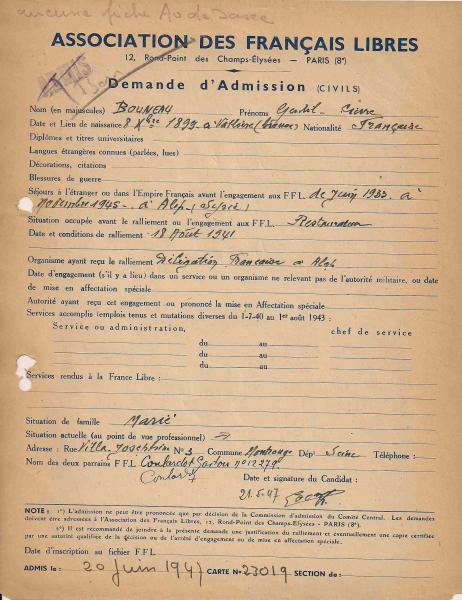 aucune fiche
ASSOCIATION DES FRANÇAIS LIBRES
12, Rond-Point des Champs-Élysées — PARIS (8e)
Demande d'Admission (CIVILS)
Nom (en majuscules) BOUNEAU Prénoms
Date et Lieu de naissance 8 Xbre 1899 à Nationalité Française
Diplômes et titres universitaires
Langues étrangères connues (parlées, lues)
Décorations, citations
Blessures de guerre
Séjours à l'étranger ou dans l'Empire Français avant l'engagement aux F.F.L. de Juin 1933 à
Novembre 1945 - à Alep (Syrie)
Situation occupée avant le ralliement ou l'engagement aux F.F.L. Restaurateur
Date et conditions de ralliement 18 Août 1941
Organisme ayant reçu le ralliement Délégation Française à Alep
Date d'engagement (s'il y a lieu) dans un service ou un organisme ne relevant pas de l'autorité militaire, ou date
de mise en affectation spéciale
Autorité ayant reçu cet engagement ou prononcé la mise en Affectation spéciale
Services accomplis (emplois tenus et mutations diverses du 1-7-40 au 1er août 1943 :
Service ou administration. chef de service
du au
du au
du au
Services rendus à la France Libre :
Situation de famille Marié
Situation actuelle (au point de vue professionnel)
Adresse : Rue Villa N° 3 Commune Montrouge Dépt Seine Téléphone :
Nom des deux parrains F.F.L. Gaston n° 12279
Date et signature du Candidat :
21.5.47
NOTE : 1°) L'admission ne peut être prononcée que par décision de la Commission d'admission du Comité Central. Les demandes
doivent être adressées à l'Association des Français Libres, 12, Rond-Point des Champs-Elysées - PARIS (8e).
2°) Il est recommandé de joindre à la présente demande une justification du ralliement et éventuellement une copie certifiée par
une autorité qualifiée de la décision ou de l'arrêté d'engagement ou de mise en affectation spéciale.
Date d'inscription au fichier F.F.L.
ADMIS le : 20 Juin 1947 CARTE N° 23019 SECTION de :